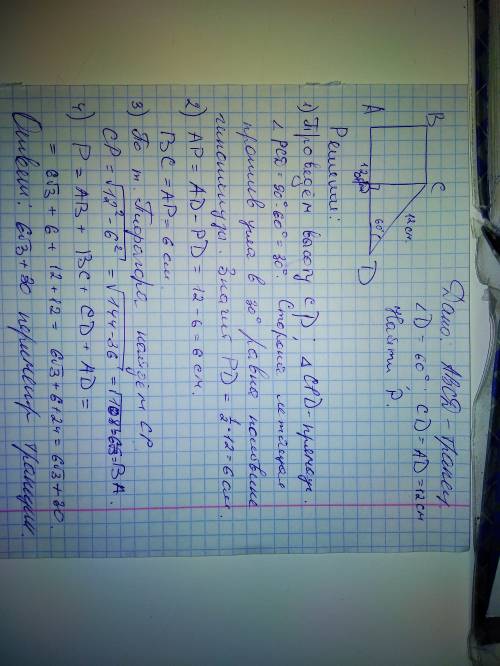 Дано: ABCD - трапец.
∠D = 60°, CD = AD = 12 см
Найти P.
B
C
12 см
A
12
P
60°
D
Решение:
1) Проведем высоту CP; △CPD - прямоуг.
∠PCD = 90°-60° = 30°. Сторона лежащая
против угла в 30° равна половине
гипотенузы. Значит PD = ½·12 = 6 см.
2) AP = AD - PD = 12 - 6 = 6 см.
BC = AP = 6 см.
3) По т. Пифагора найдём CP.
CP = √12² - 6² = √144-36 = √108 = 6√3 = BA.
4) P = AB + BC + CD + AD =
= 6√3 + 6 + 12 + 12 = 6√3 + 6 + 24 = 6√3 + 30.
Ответ: 6√3 + 30 периметр трапеции.